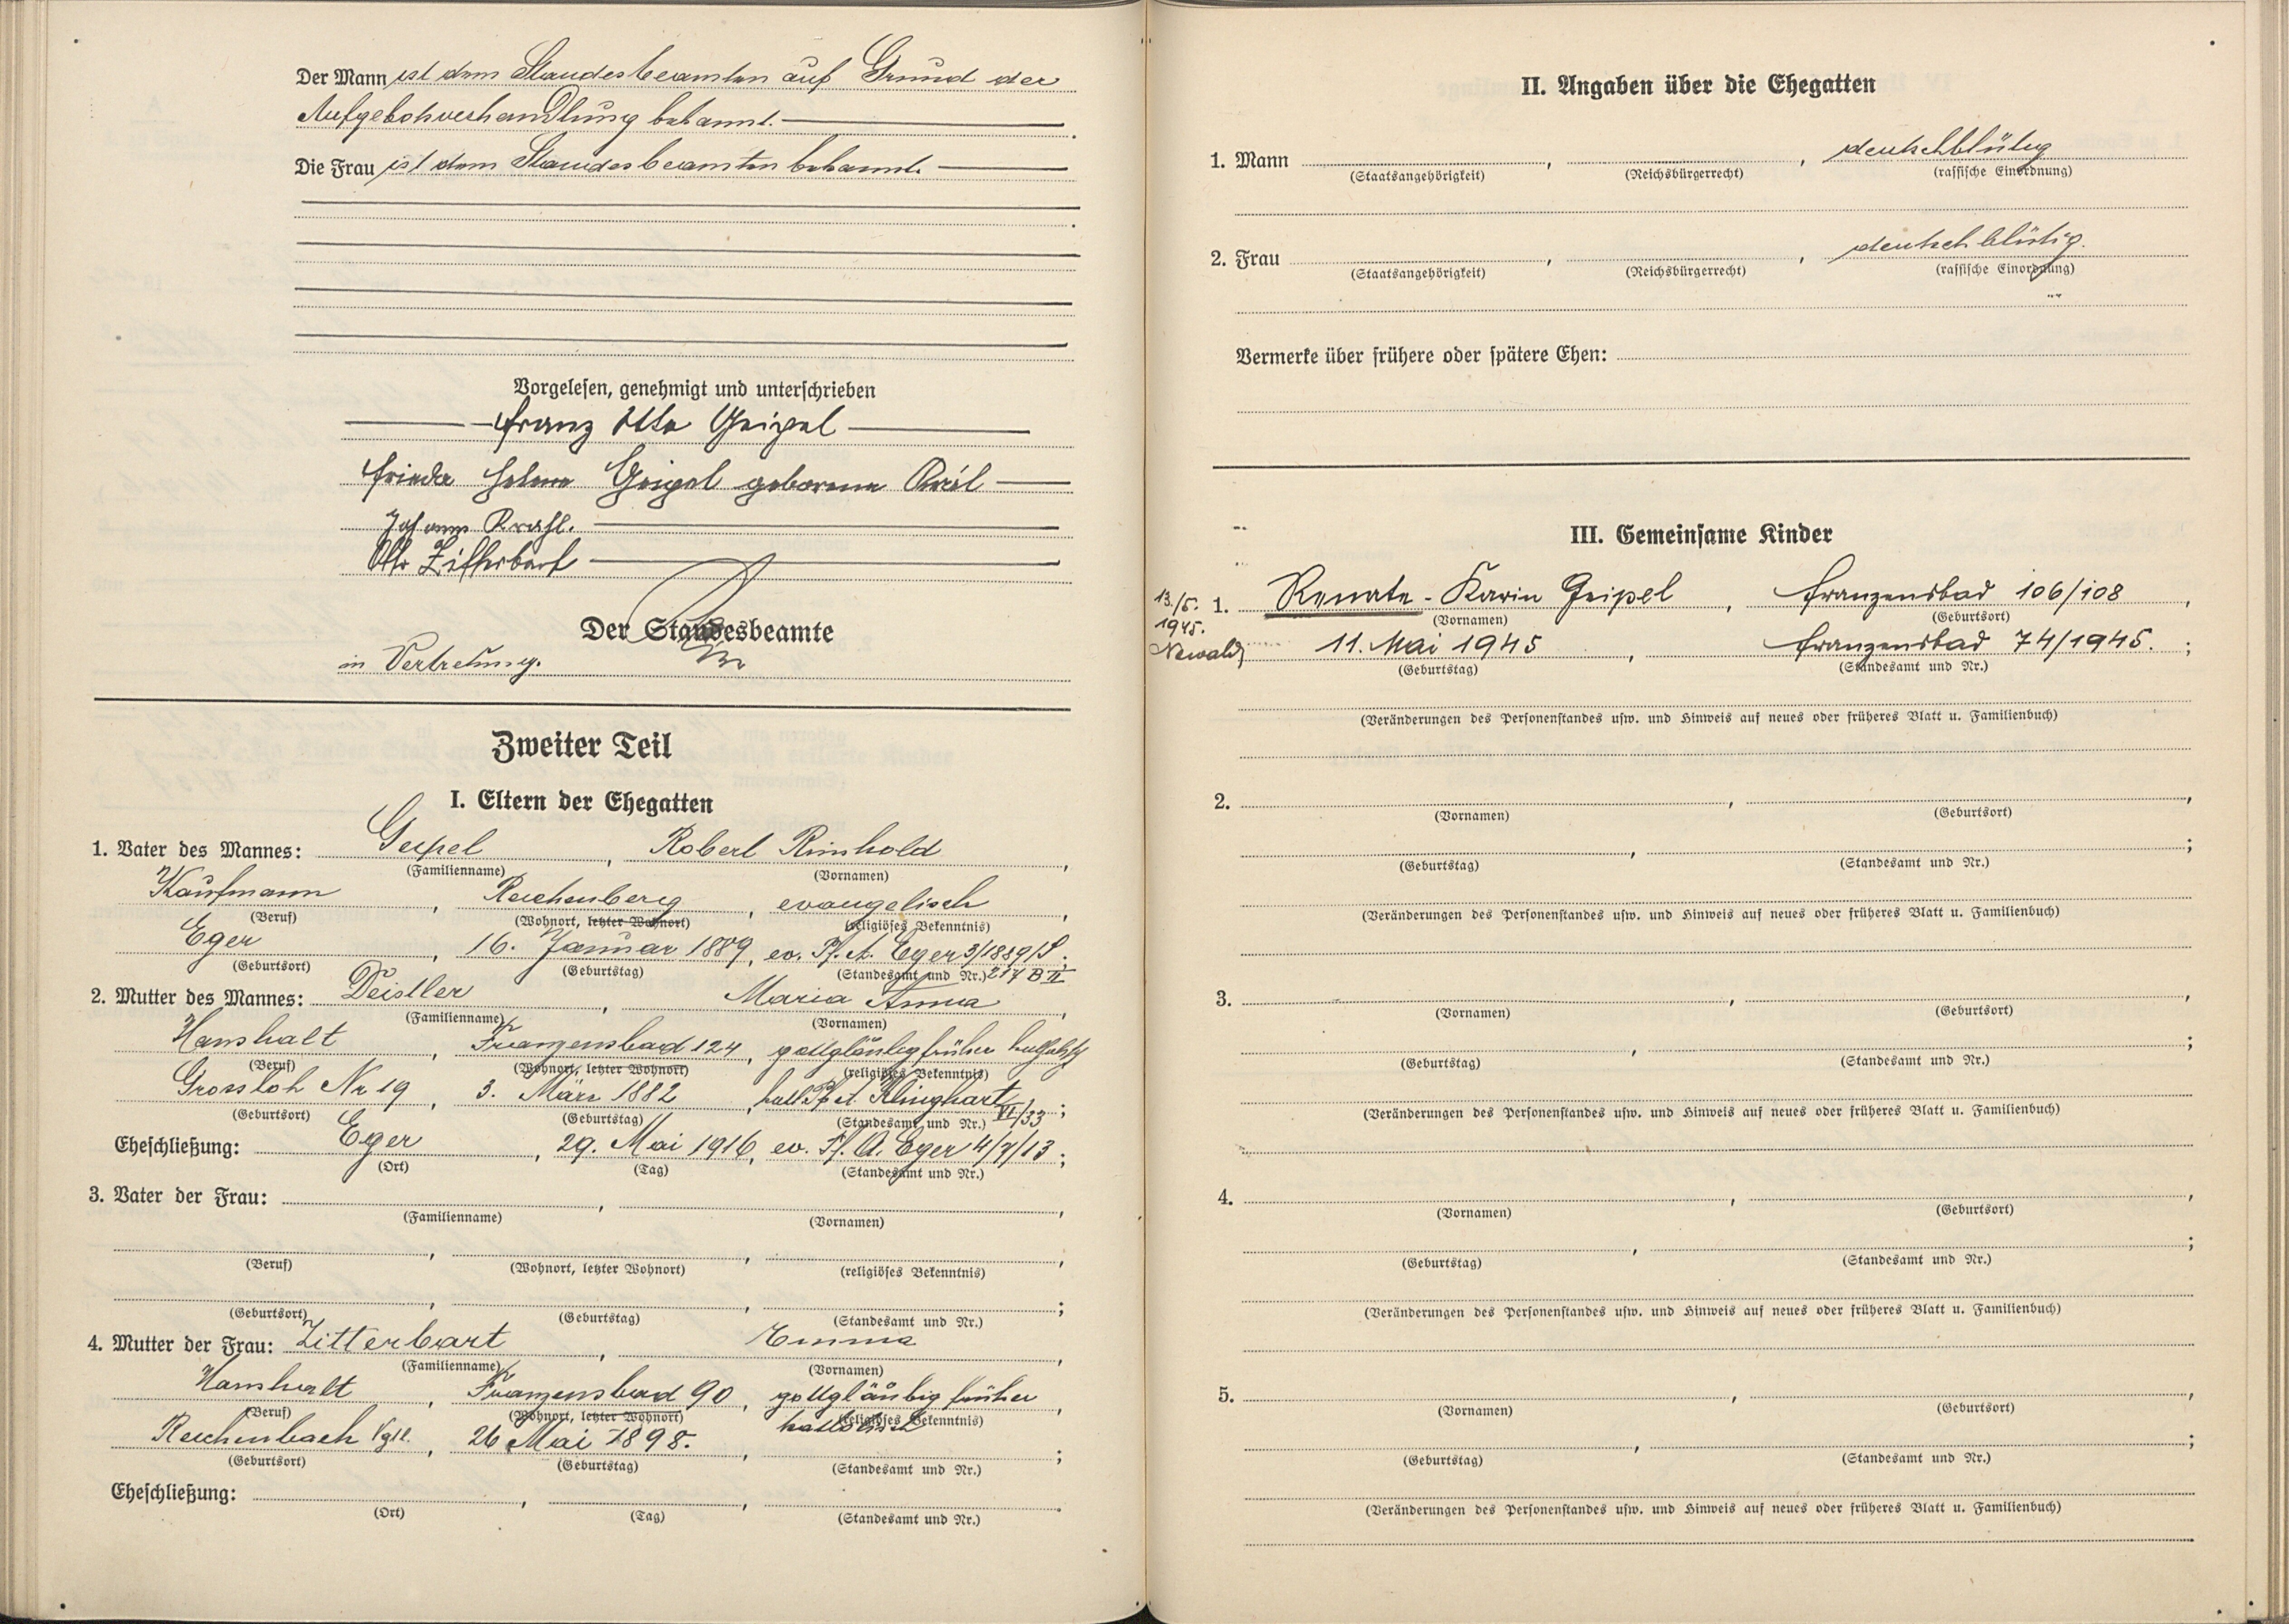 Der Mann ist dem Standesbeamten auf Grund der
Aufgebotsverhandlung bekannt.
Die Frau ist dem Standesbeamten bekannt.
Vorgelesen, genehmigt und unterschrieben
Franz Otto Geipel
Frieda Helene Geipel geborene
Johann Krahl.
Otto Zitterbart
Der Standesbeamte
in Vertretung.
Zweiter Teil
I. Eltern der Ehegatten
1. Vater des Mannes: Geipel, Robert Reinhold,
(Familienname) (Vornamen)
Kaufmann, Reichenberg, evangelisch,
(Beruf) (Wohnort, letzter Wohnort) (religiöses Bekenntnis)
Eger, 16. Januar 1889, ev. Pf. A. Eger 3/1889/S.;
(Geburtsort) (Geburtstag) (Standesamt und Nr.) 217 B II
2. Mutter des Mannes: Deistler, Maria Anna,
(Familienname) (Vornamen)
Haushalt, Franzensbad 124, gottgläubig früher katholisch
(Beruf) (Wohnort, letzter Wohnort) (religiöses Bekenntnis)
Grossloh Nr 19, 3. März 1882, kath. Pf. A. Klinghart VI/33;
(Geburtsort) (Geburtstag) (Standesamt und Nr.)
Eheschließung: Eger, 29. Mai 1916, ev. Pf. A. Eger 4/7/13;
(Ort) (Tag) (Standesamt und Nr.)
3. Vater der Frau: , ,
(Familienname) (Vornamen)
, , ,
(Beruf) (Wohnort, letzter Wohnort) (religiöses Bekenntnis)
, , ;
(Geburtsort) (Geburtstag) (Standesamt und Nr.)
4. Mutter der Frau: Zitterbart, Emma,
(Familienname) (Vornamen)
Haushalt, Franzensbad 90, gottgläubig früher,
(Beruf) (Wohnort, letzter Wohnort) (religiöses Bekenntnis)
katholisch
Reichenbach Vgtl., 26 Mai 1898. , ;
(Geburtsort) (Geburtstag) (Standesamt und Nr.)
Eheschließung: , , .
(Ort) (Tag) (Standesamt und Nr.)
II. Angaben über die Ehegatten
1. Mann , , deutschblütig
(Staatsangehörigkeit) (Reichsbürgerrecht) (rassische Einordnung)
2. Frau , , deutschblütig.
(Staatsangehörigkeit) (Reichsbürgerrecht) (rassische Einordnung)
Vermerke über frühere oder spätere Ehen:
III. Gemeinsame Kinder
13./5.
1945.
1. Renate-Karin Geipel, Franzensbad 106/108,
(Vornamen) (Geburtsort)
11. Mai 1945, Franzensbad 74/1945.;
(Geburtstag) (Standesamt und Nr.)
(Veränderungen des Personenstandes usw. und Hinweis auf neues oder früheres Blatt u. Familienbuch)
2. , ,
(Vornamen) (Geburtsort)
, ;
(Geburtstag) (Standesamt und Nr.)
(Veränderungen des Personenstandes usw. und Hinweis auf neues oder früheres Blatt u. Familienbuch)
3. , ,
(Vornamen) (Geburtsort)
, ;
(Geburtstag) (Standesamt und Nr.)
(Veränderungen des Personenstandes usw. und Hinweis auf neues oder früheres Blatt u. Familienbuch)
4. , ,
(Vornamen) (Geburtsort)
, ;
(Geburtstag) (Standesamt und Nr.)
(Veränderungen des Personenstandes usw. und Hinweis auf neues oder früheres Blatt u. Familienbuch)
5. , ,
(Vornamen) (Geburtsort)
, ;
(Geburtstag) (Standesamt und Nr.)
(Veränderungen des Personenstandes usw. und Hinweis auf neues oder früheres Blatt u. Familienbuch)